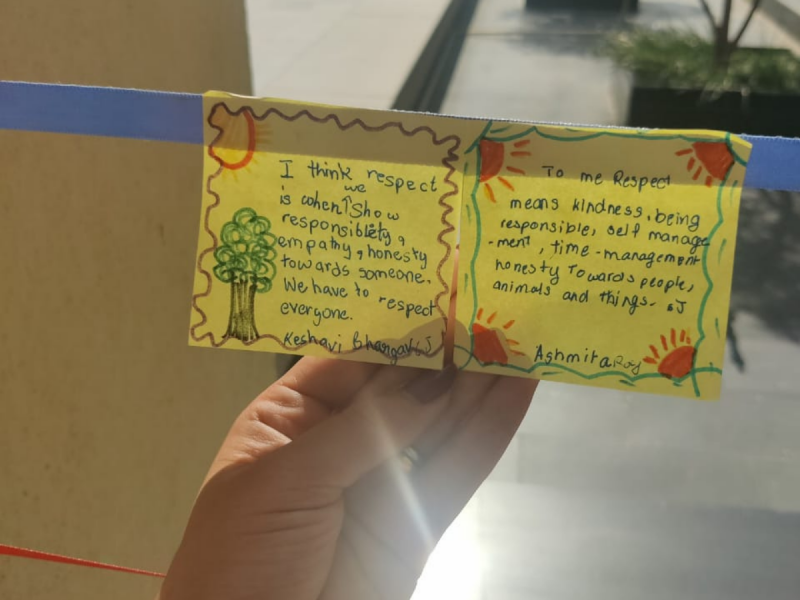 I think respect
we
is when↑show
responsiblety,
empathy, honesty
towards someone.
We have to respect
everyone.
Keshavi Bhargav 6J
To me Respect
means kindness, being
responsible, self manage
-ment, time-management
honesty Towards people,
animals and things. 6J
Ashmita Roy